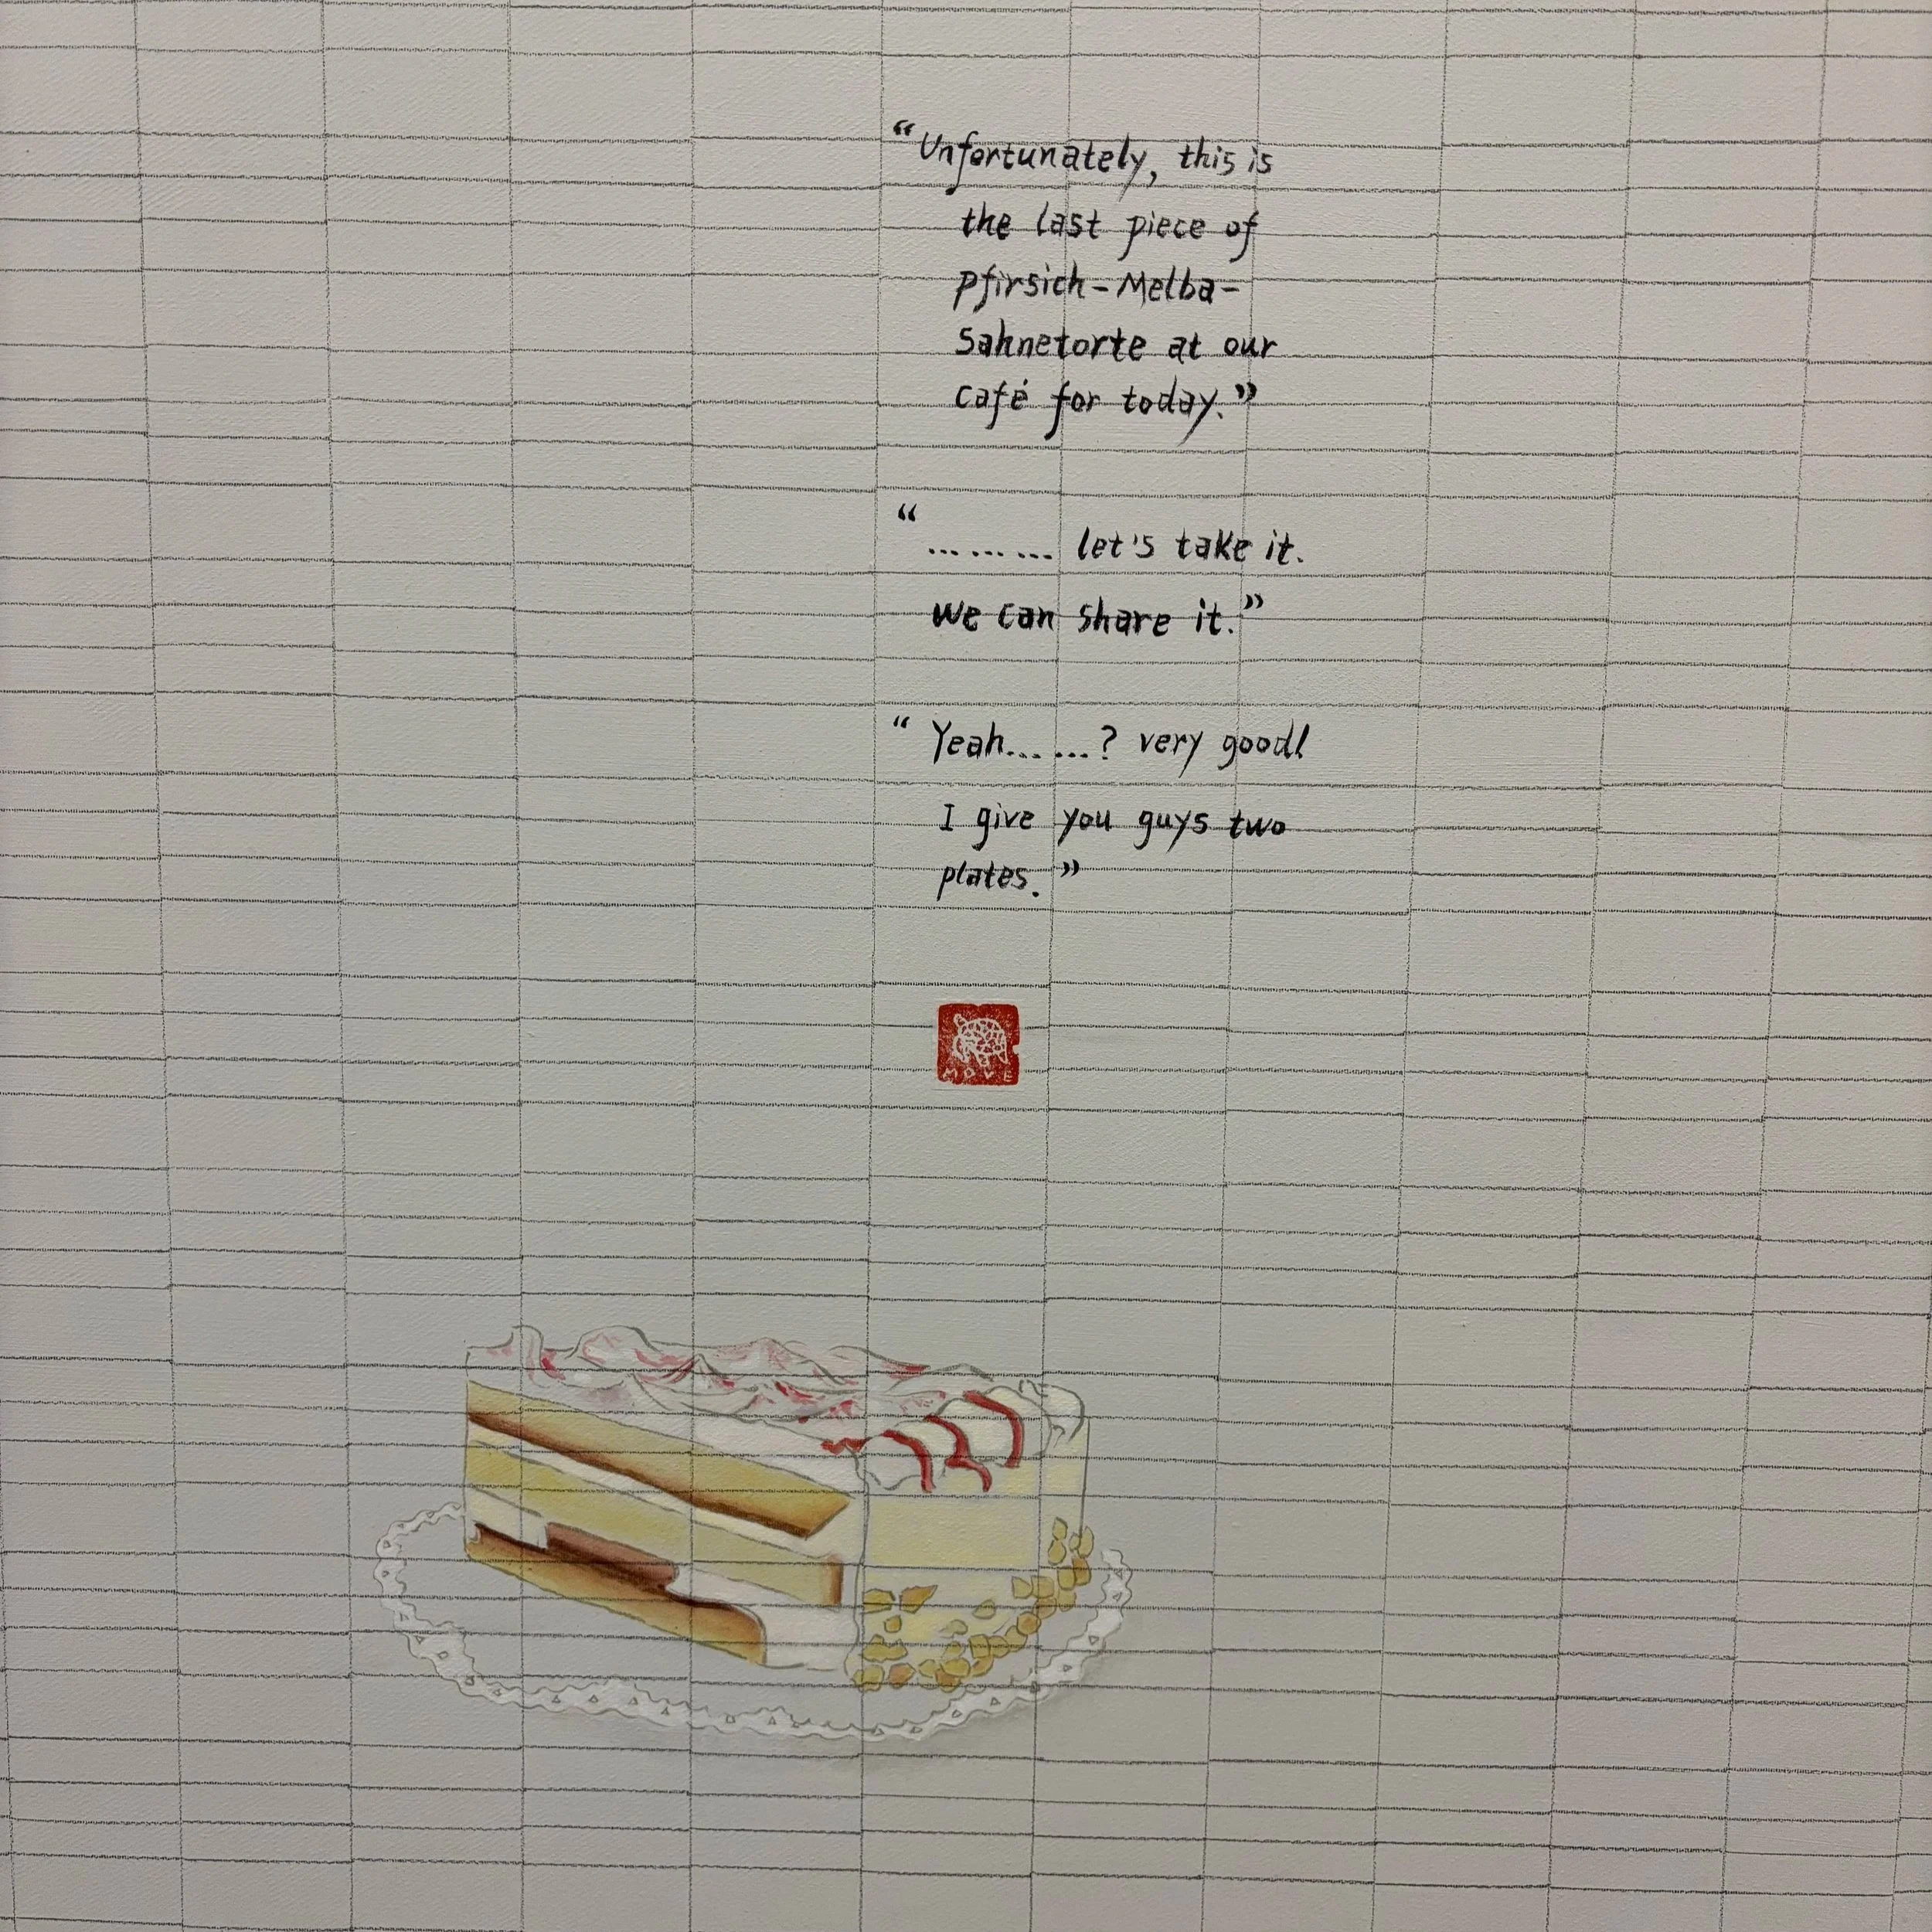 “Unfortunately, this is
the last piece of
Pfirsich-Melba-
Sahnetorte at our
café for today.”
“......... let's take it.
We can share it.”
“Yeah......? very good!
I give you guys two
plates.”
MOVE